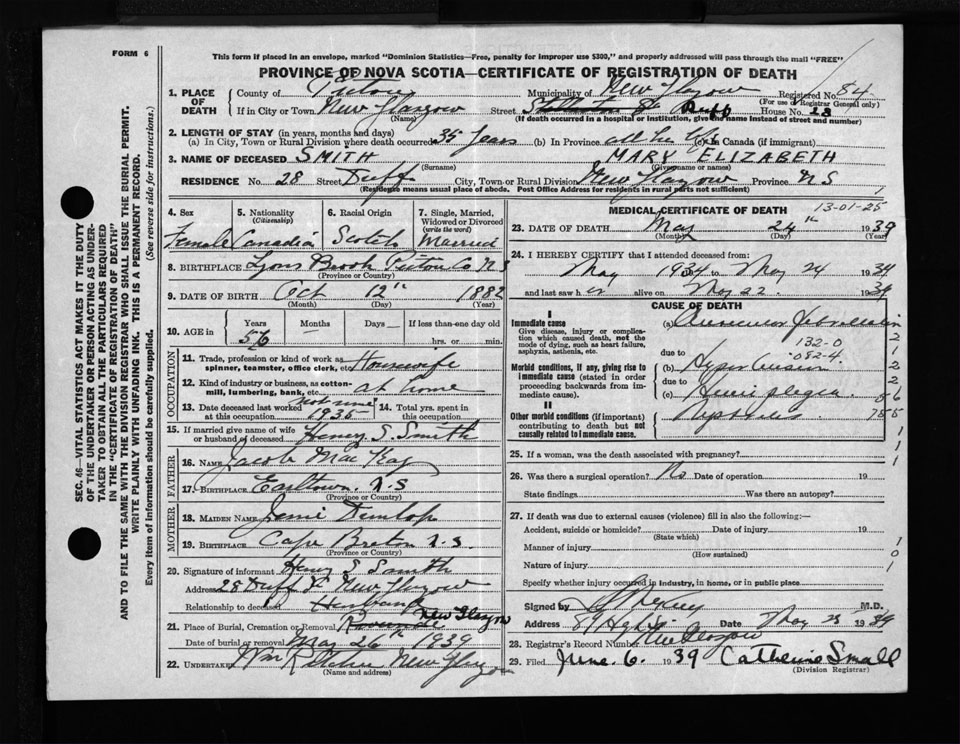 FORM 6
This form if placed in an envelope, marked "Dominion Statistics—Free, penalty for improper use $300," and properly addressed will pass through the mail "FREE"
PROVINCE OF NOVA SCOTIA—CERTIFICATE OF REGISTRATION OF DEATH
SEC. 46—VITAL STATISTICS ACT MAKES IT THE DUTY
OF THE UNDERTAKER OR PERSON ACTING AS UNDER-
TAKER TO OBTAIN ALL THE PARTICULARS REQUIRED
IN THE "CERTIFICATE OF REGISTRATION OF DEATH"
AND TO FILE THE SAME WITH THE DIVISION REGISTRAR WHO SHALL ISSUE THE BURIAL PERMIT.
WRITE PLAINLY WITH UNFADING INK. THIS IS A PERMANENT RECORD.
Every item of information should be carefully supplied. (See reverse side for instructions.)
1. PLACE OF DEATH
County of Pictou Municipality of New Glasgow Registered No. 84
(For use of Registrar General only)
If in City or Town New Glasgow Street Duff House No. 28
(Name) (If death occurred in a hospital or institution, give the name instead of street and number)
2. LENGTH OF STAY (in years, months and days)
(a) In City, Town or Rural Division where death occurred 35 years (b) In Province all her life (c) In Canada (if immigrant)
3. NAME OF DECEASED SMITH MARY ELIZABETH
(Surname) (Given name or names)
RESIDENCE No. 28 Street Duff City, Town or Rural Division New Glasgow Province N S
(Residence means usual place of abode. Post Office Address for residents in rural parts not sufficient)
4. Sex 5. Nationality 6. Racial Origin 7. Single, Married,
(Citizenship) Widowed or Divorced
(write the word)
Female Canadian Scotch Married
8. BIRTHPLACE Lyons Brook Pictou Co N S
(Province or Country)
9. DATE OF BIRTH Oct 12" 1882
(Month) (Day) (Year)
10. AGE in Years Months Days If less than one day old
56 hrs. or min.
OCCUPATION
11. Trade, profession or kind of work as
spinner, teamster, office clerk, etc. Housewife
12. Kind of industry or business, as cotton-
mill, lumbering, bank, etc. at home
13. Date deceased last worked not since
at this occupation 1935
14. Total yrs. spent in
this occupation
15. If married give name of wife
or husband of deceased Henry S. Smith
FATHER
16. Name Jacob MacKay
17. Birthplace Earltown N.S
(Province or Country)
MOTHER
18. Maiden Name Jamie Dunlop
19. Birthplace Cape Breton N.S.
(Province or Country)
20. Signature of informant Henry S Smith
Address 28 Duff St New Glasgow
Relationship to deceased Husband
21. Place of Burial, Cremation or Removal New Glasgow
Date of burial or removal May 26th 1939
22. Undertaker New Glasgow
(Name and address)
MEDICAL CERTIFICATE OF DEATH
13-01-25
23. DATE OF DEATH May 24th 1939
(Month) (Day) (Year)
24. I HEREBY CERTIFY that I attended deceased from:
May 1934 to May 24 1939
and last saw her alive on May 22 1939
CAUSE OF DEATH
I
Immediate cause
Give disease, injury or complica-
tion which caused death, not the
mode of dying, such as heart failure,
asphyxia, asthenia, etc.
(a) Auricular fibrillation
132-0
082-4
due to
Morbid conditions, if any, giving rise to
immediate cause (stated in order
proceeding backwards from im-
mediate cause).
(b) Hypertension
due to
(c) Hemiplegia
II
Other morbid conditions (if important)
contributing to death but not
causally related to immediate cause.
25. If a woman, was the death associated with pregnancy?
26. Was there a surgical operation? No Date of operation 19
State findings Was there an autopsy?
27. If death was due to external causes (violence) fill in also the following:—
Accident, suicide or homicide? Date of injury 19
(State which)
Manner of injury
(How sustained)
Nature of injury
Specify whether injury occurred in industry, in home, or in public place
Signed by M.D.
Address New Glasgow May 25 1939
28. Registrar's Record Number
29. Filed June 6. 1939 Catherine Small
(Division Registrar)